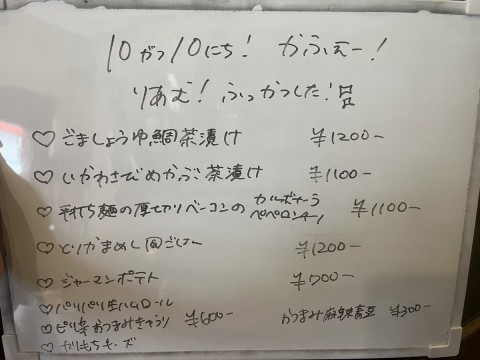 10がつ10にち! かふぇー!
りあむ! ふっかつした!
♡ ごましょうゆ鯛茶漬け ¥1200-
♡ いかわさびめかぶ茶漬け ¥1100-
♡ 平打ち麺の厚切りベーコンの カルボナーラ ペペロンチーノ ¥1100-
♡ とりかまめし風ごはん ¥1200-
♡ ジャーマンポテト ¥700-
♡ パリパリ生ハムロール
♡ ピリ辛おつまみきゅうり ¥600- おつまみ麻辣青豆 ¥300-
♡ カリもちチーズ